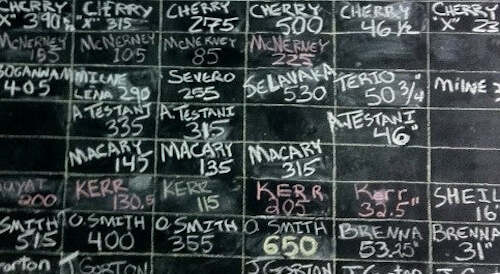 CHERRY CHERRY CHERRY CHERRY CHERRY CHERRY
"X" 390 "X" 315 275 500 46 ½ "X" 23
McNERNEY McNERNEY McNERNEY McNERNEY
105 85 225
MILNE SEVERO SELAVAKA TERIO MILNE
405 LENA 290 255 530 50 ¾"
A.TESTANI A.TESTANI A.TESTANI
335 315 46"
MACARY MACARY MACARY
145 135 315
KERR KERR KERR Kerr SHEIL
200 130.5 115 205 32.5" 16
SMITH O.SMITH O.SMITH O.SMITH BRENNA BRENNA
515 400 355 650 53.25" 31"
J GORTON J.GORTON